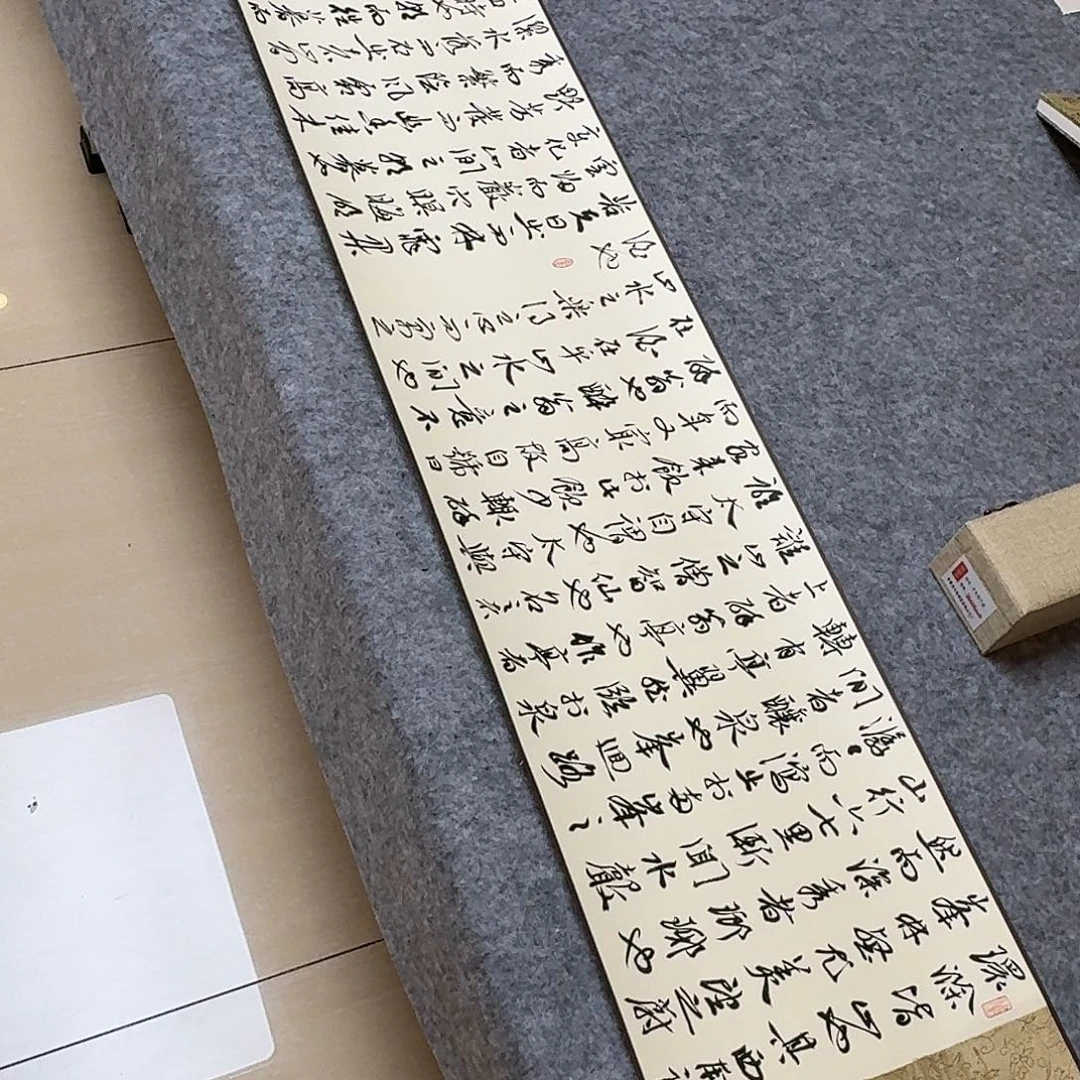 環滁皆山也其西南諸
峯林壑尤美望之蔚
然而深秀者瑯琊也
山行六七里漸聞水聲
潺〻而瀉出於兩峯之
間者釀泉也峯迴路
轉有亭翼然臨於泉
上者醉翁亭也作亭者
誰山之僧智仙也名之者
誰太守自謂也太守與
客来飲於此飲少輒醉
而年又最高故自號曰
醉翁也醉翁之意不
在酒在乎山水之間也
山水之樂得之心而寓之
酒也
若夫日出而林霏開
雲归而巖穴暝晦明
變化者山間之朝暮也
野芳發而幽香佳木
秀而繁陰風霜高
潔水落而石出者山間
四時也朝而往暮而